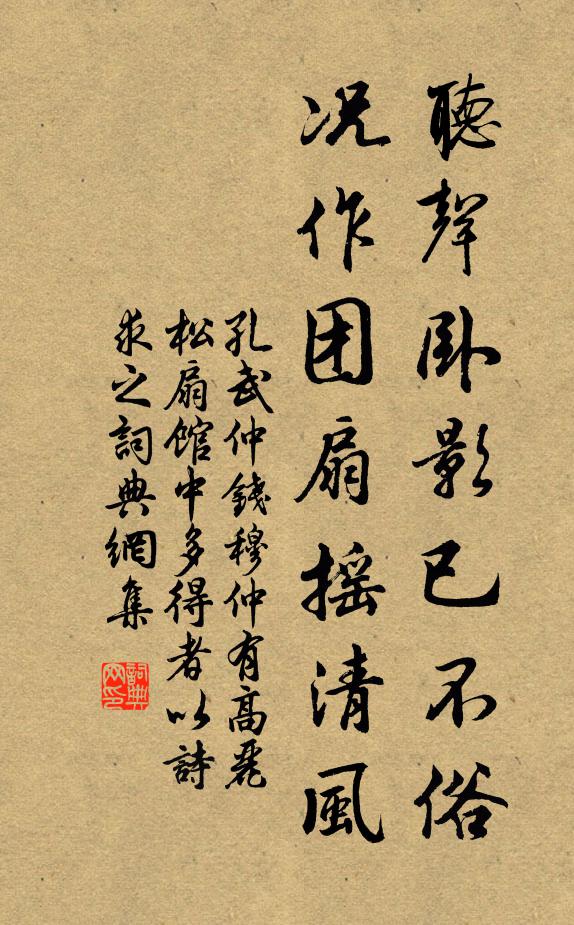 聽聲卧影已不俗
况作团扇摇清風
孔武仲錢穆仲有高麗
松扇館中多得者以詩
求之詞典網集
詞典网印